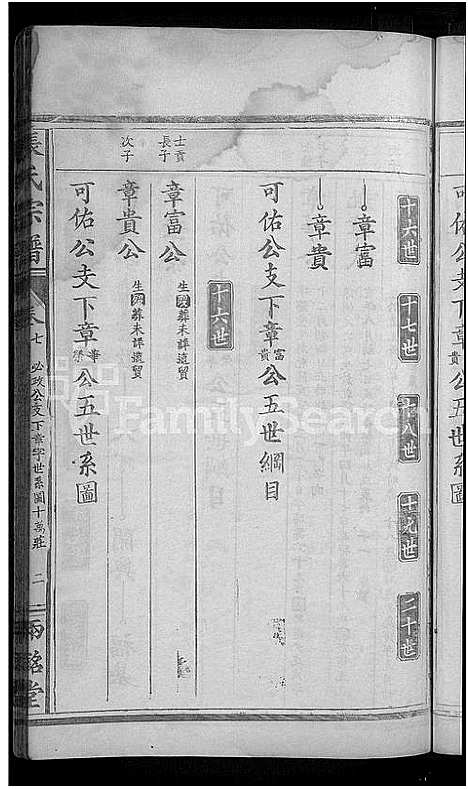 十六世 十七世 十八世 十九世 二十世
章富
章貴
可佑公支下章富貴公五世綱目
十六世
士貴長子
章富公 生國葬未詳遠貿
次子
章貴公 生國葬未詳遠貿
可佑公支下章華榮公五世系圖
張氏宗譜 卷七 必政公支下章字世系圖十萬莊 二 兩銘堂
FamilySearch